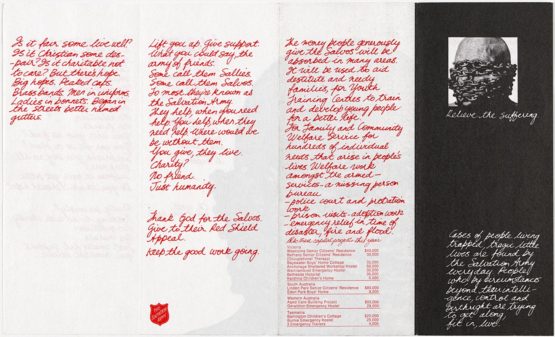 Is it fair some live well?
Is it Christian some des-
-pair? Is it charitable not
to care? But there's hope.
Big hopes. Peaked caps.
Brass bands. Men in uniforms.
Ladies in bonnets. Began in
the streets better named
gutters.
Lift you up. Give support.
What you could say, the
army of friends.
Some call them Sallies.
Some call them Salvos.
To most they're known as
the Salvation Army.
They help, when you need
help. You help when they
need help. Where would we
be without them.
You give, they live.
Charity?
No friend.
Just humanity.
Thank God for the Salvos.
Give to their Red Shield
Appeal.
Keep the good work going.
The money people generously
give the Salvos will be
absorbed in many areas.
It will be used to aid
destitute and needy
families, for Youth
Training Centres to train
and develop young people
for a better life.
For Family and Community
Welfare Service for
hundreds of individual
needs that arise in people's
lives. Welfare work
amongst the armed-
services - a missing person
bureau
- police court and probation
work
- prison visits - adoption work
- emergency relief in time of
disaster, fire and flood.
Victoria
South Australia
Western Australia
Tasmania
Relieve the suffering
Cases of people living
trapped, tragic little
lives are found by
the Salvation Army
everyday. People
who by circumstances
beyond their intelli-
gence, control and
birthright are trying
to get along,
fit in, live.